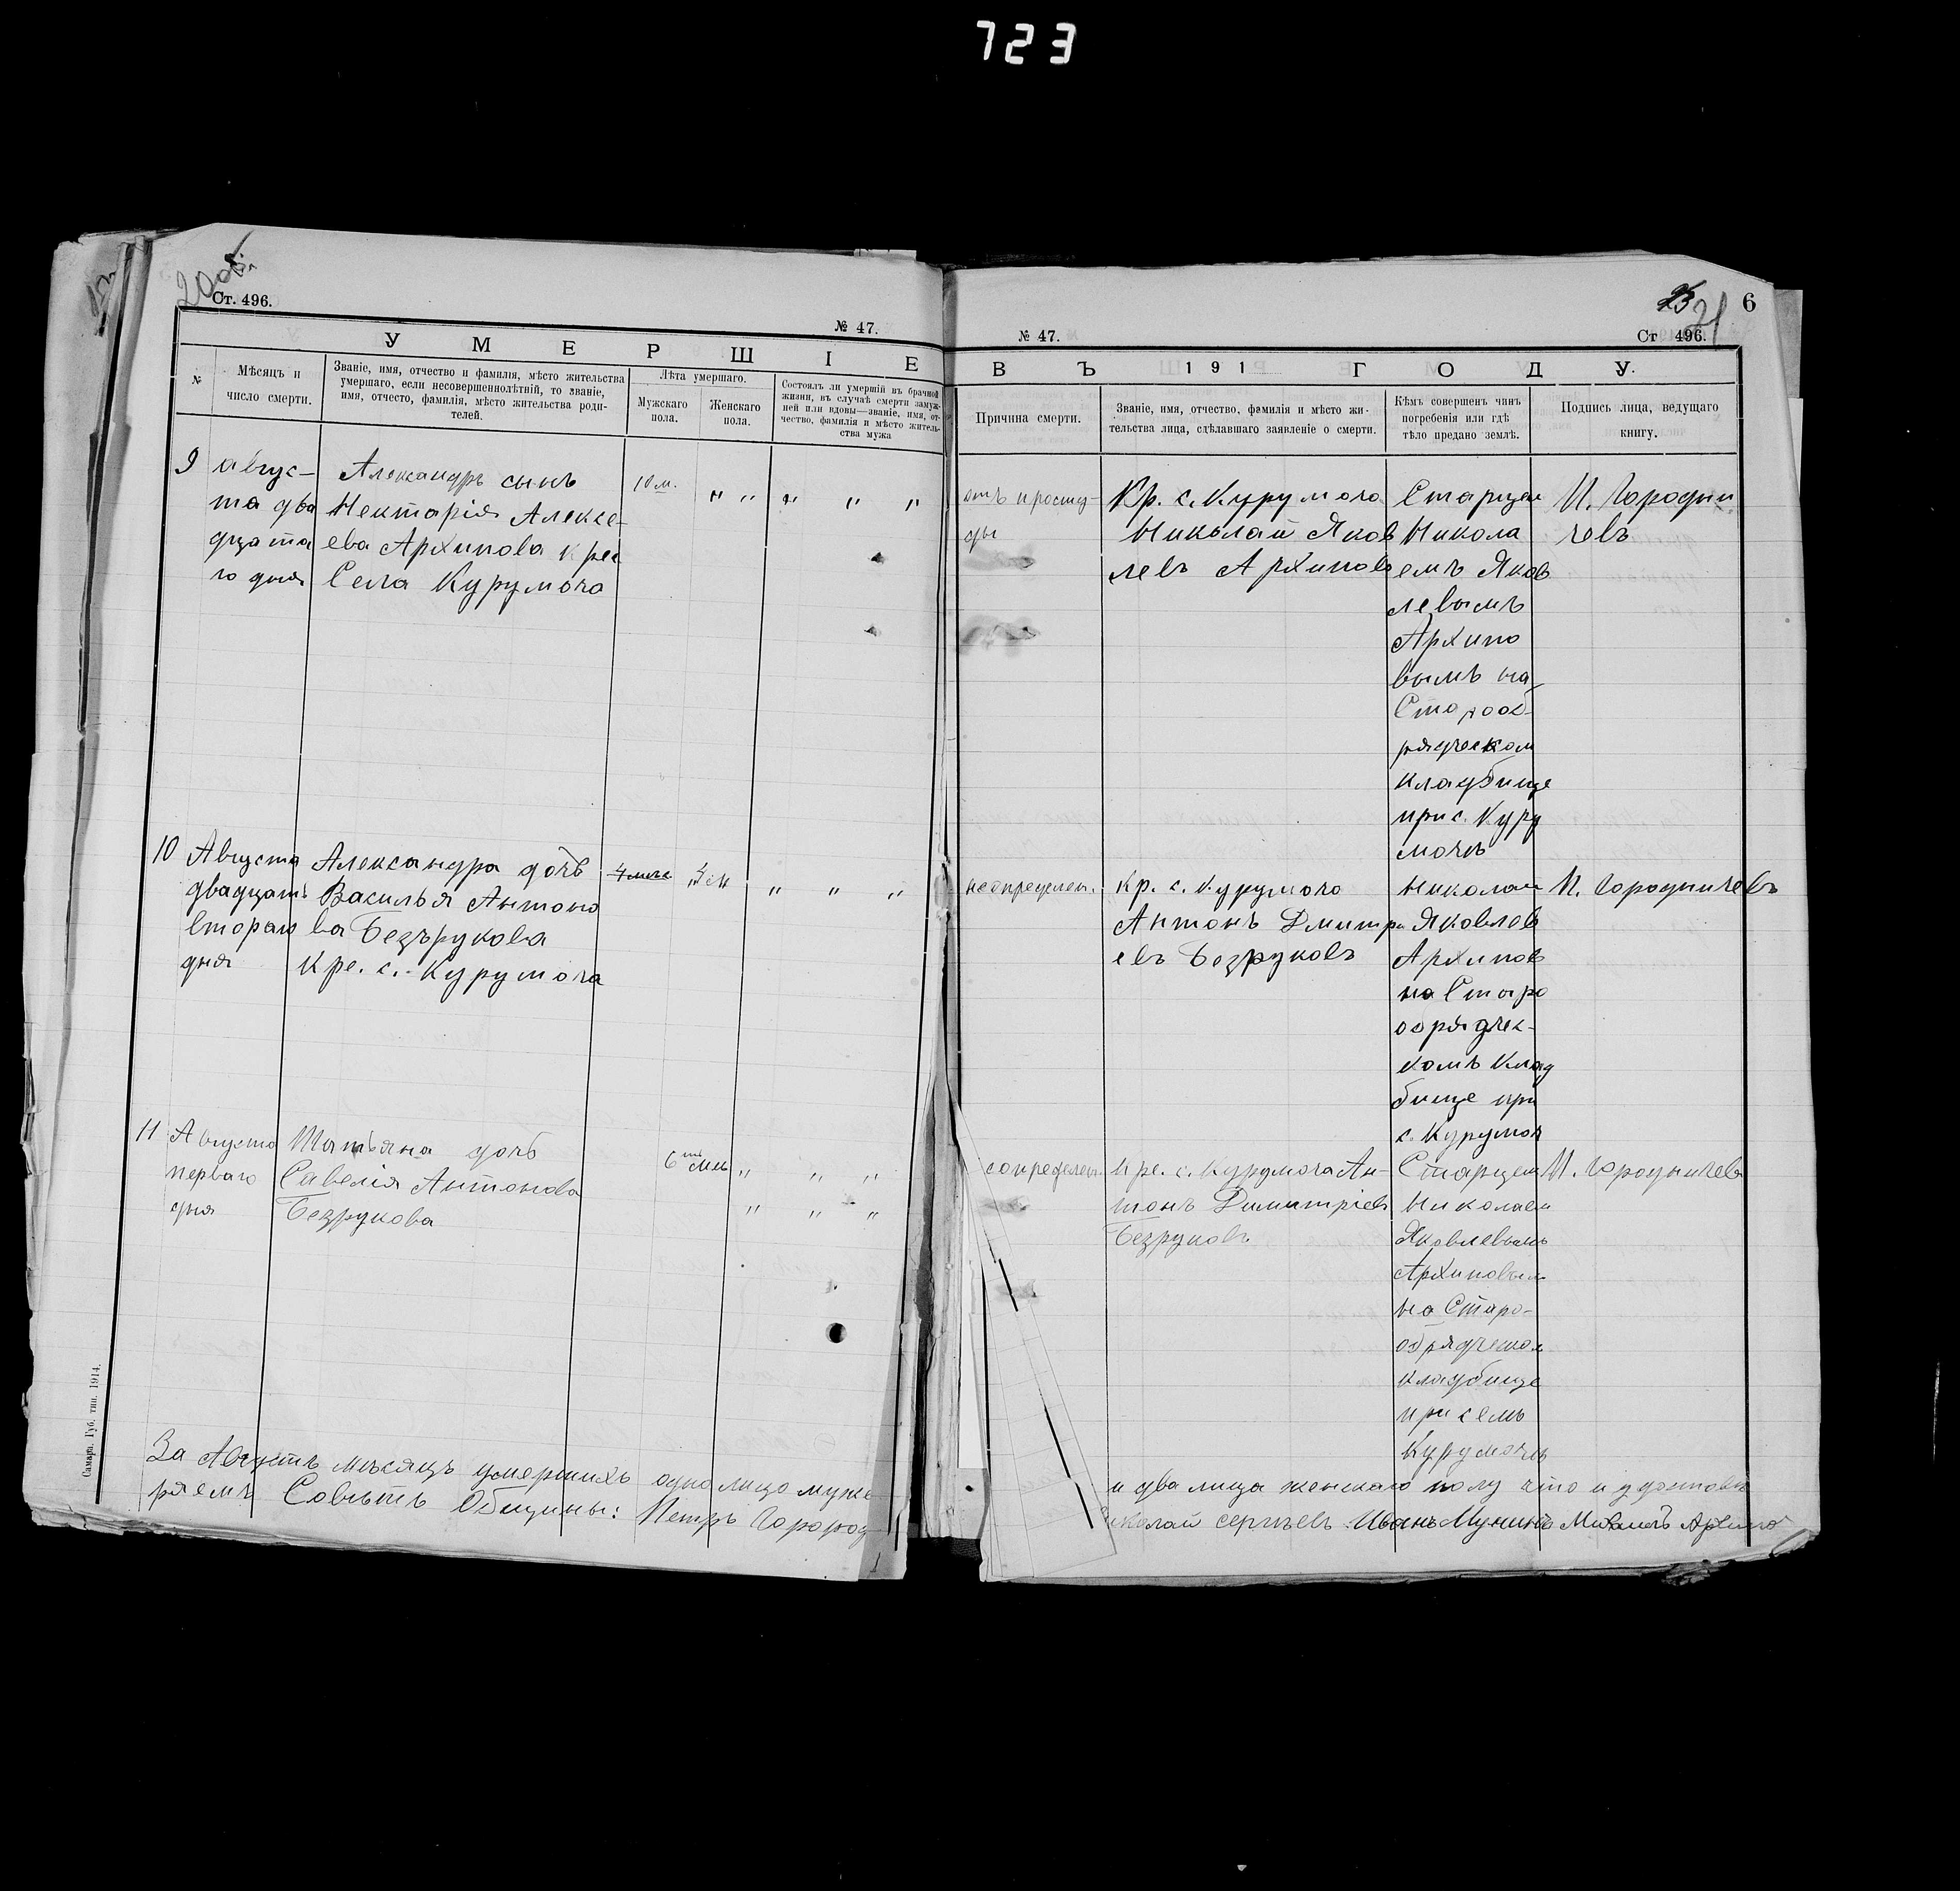 723
Ст. 496.
№ 47.
У М Е Р Ш І Е
№
Мѣсяцъ и
число смерти.
Званіе, имя, отчество и фамилія, мѣсто жительства
умершаго, если несовершеннолѣтній, то званіе,
имя, отчесто, фамилія, мѣсто жительства роди-
телей.
Лѣта умершаго.
Мужскаго
пола.
Женскаго
пола.
Состоялъ ли умершій въ брачной
жизни, въ случаѣ смерти замуж-
ней или вдовы—званіе, имя, от-
чество, фамилія и мѣсто житель-
ства мужа
9
авгус-
та два
дцата
го дня
Александръ сынъ
Нектарія Алексе-
ева Архипова крес
Села Курумоча
10 м.
" " " " "
10
Августа
двадцать
втораго
дня
Александра дочь
Василья Антоно
ва Безърукова
Кре. с. Курумоча
" " "
11
Августа
перваго
дня
Татьяна дочь
Савелія Антонова
Безрукова
6
" " "
" " "
За Августъ мѣсяцъ умершихъ одно лицо муж
ряемъ Совѣтъ Общины: Петръ Город
Самара. Губ. тип. 1914.
25
21
6
№ 47.
Ст 496.
В Ъ 191 Г О Д У.
Причина смерти.
Званіе, имя, отчество, фамилія и мѣсто жи-
тельства лица, сдѣлавшаго заявленіе о смерти.
Кѣмъ совершенъ чинъ
погребенія или гдѣ
тѣло предано землѣ.
Подпись лица, ведущаго
книгу.
отъ просту-
ды
Кр. с. Курумоча
Николай Яков
левъ Архиповъ
Старцем
Никола
емъ Яков
левымъ
Архипо
вымъ на
Старооб-
рядческом
кладбище
при с. Куру
мочъ
П. Городни
чевъ
неопределен.
Кр. с. Курумоча
Антонъ Дмитри
евъ Безруковъ
Николаем
Яковлев
Архипов
на Старо
обрядчес-
комъ Клад
бище при
с. Курумоч
П. Городничевъ
Кре. с. Курумоча Ан-
тонъ Димитріев
Безруковъ
Старцем
Николаем
Яковлевымъ
Архиповым
на Старо-
обрядческом
кладбище
при селъ
Курумочъ
П. Городничевъ
и два лица женскаго полу что и удостовѣ
Сергѣевъ Иванъ Мунинъ Михаилъ Архипо